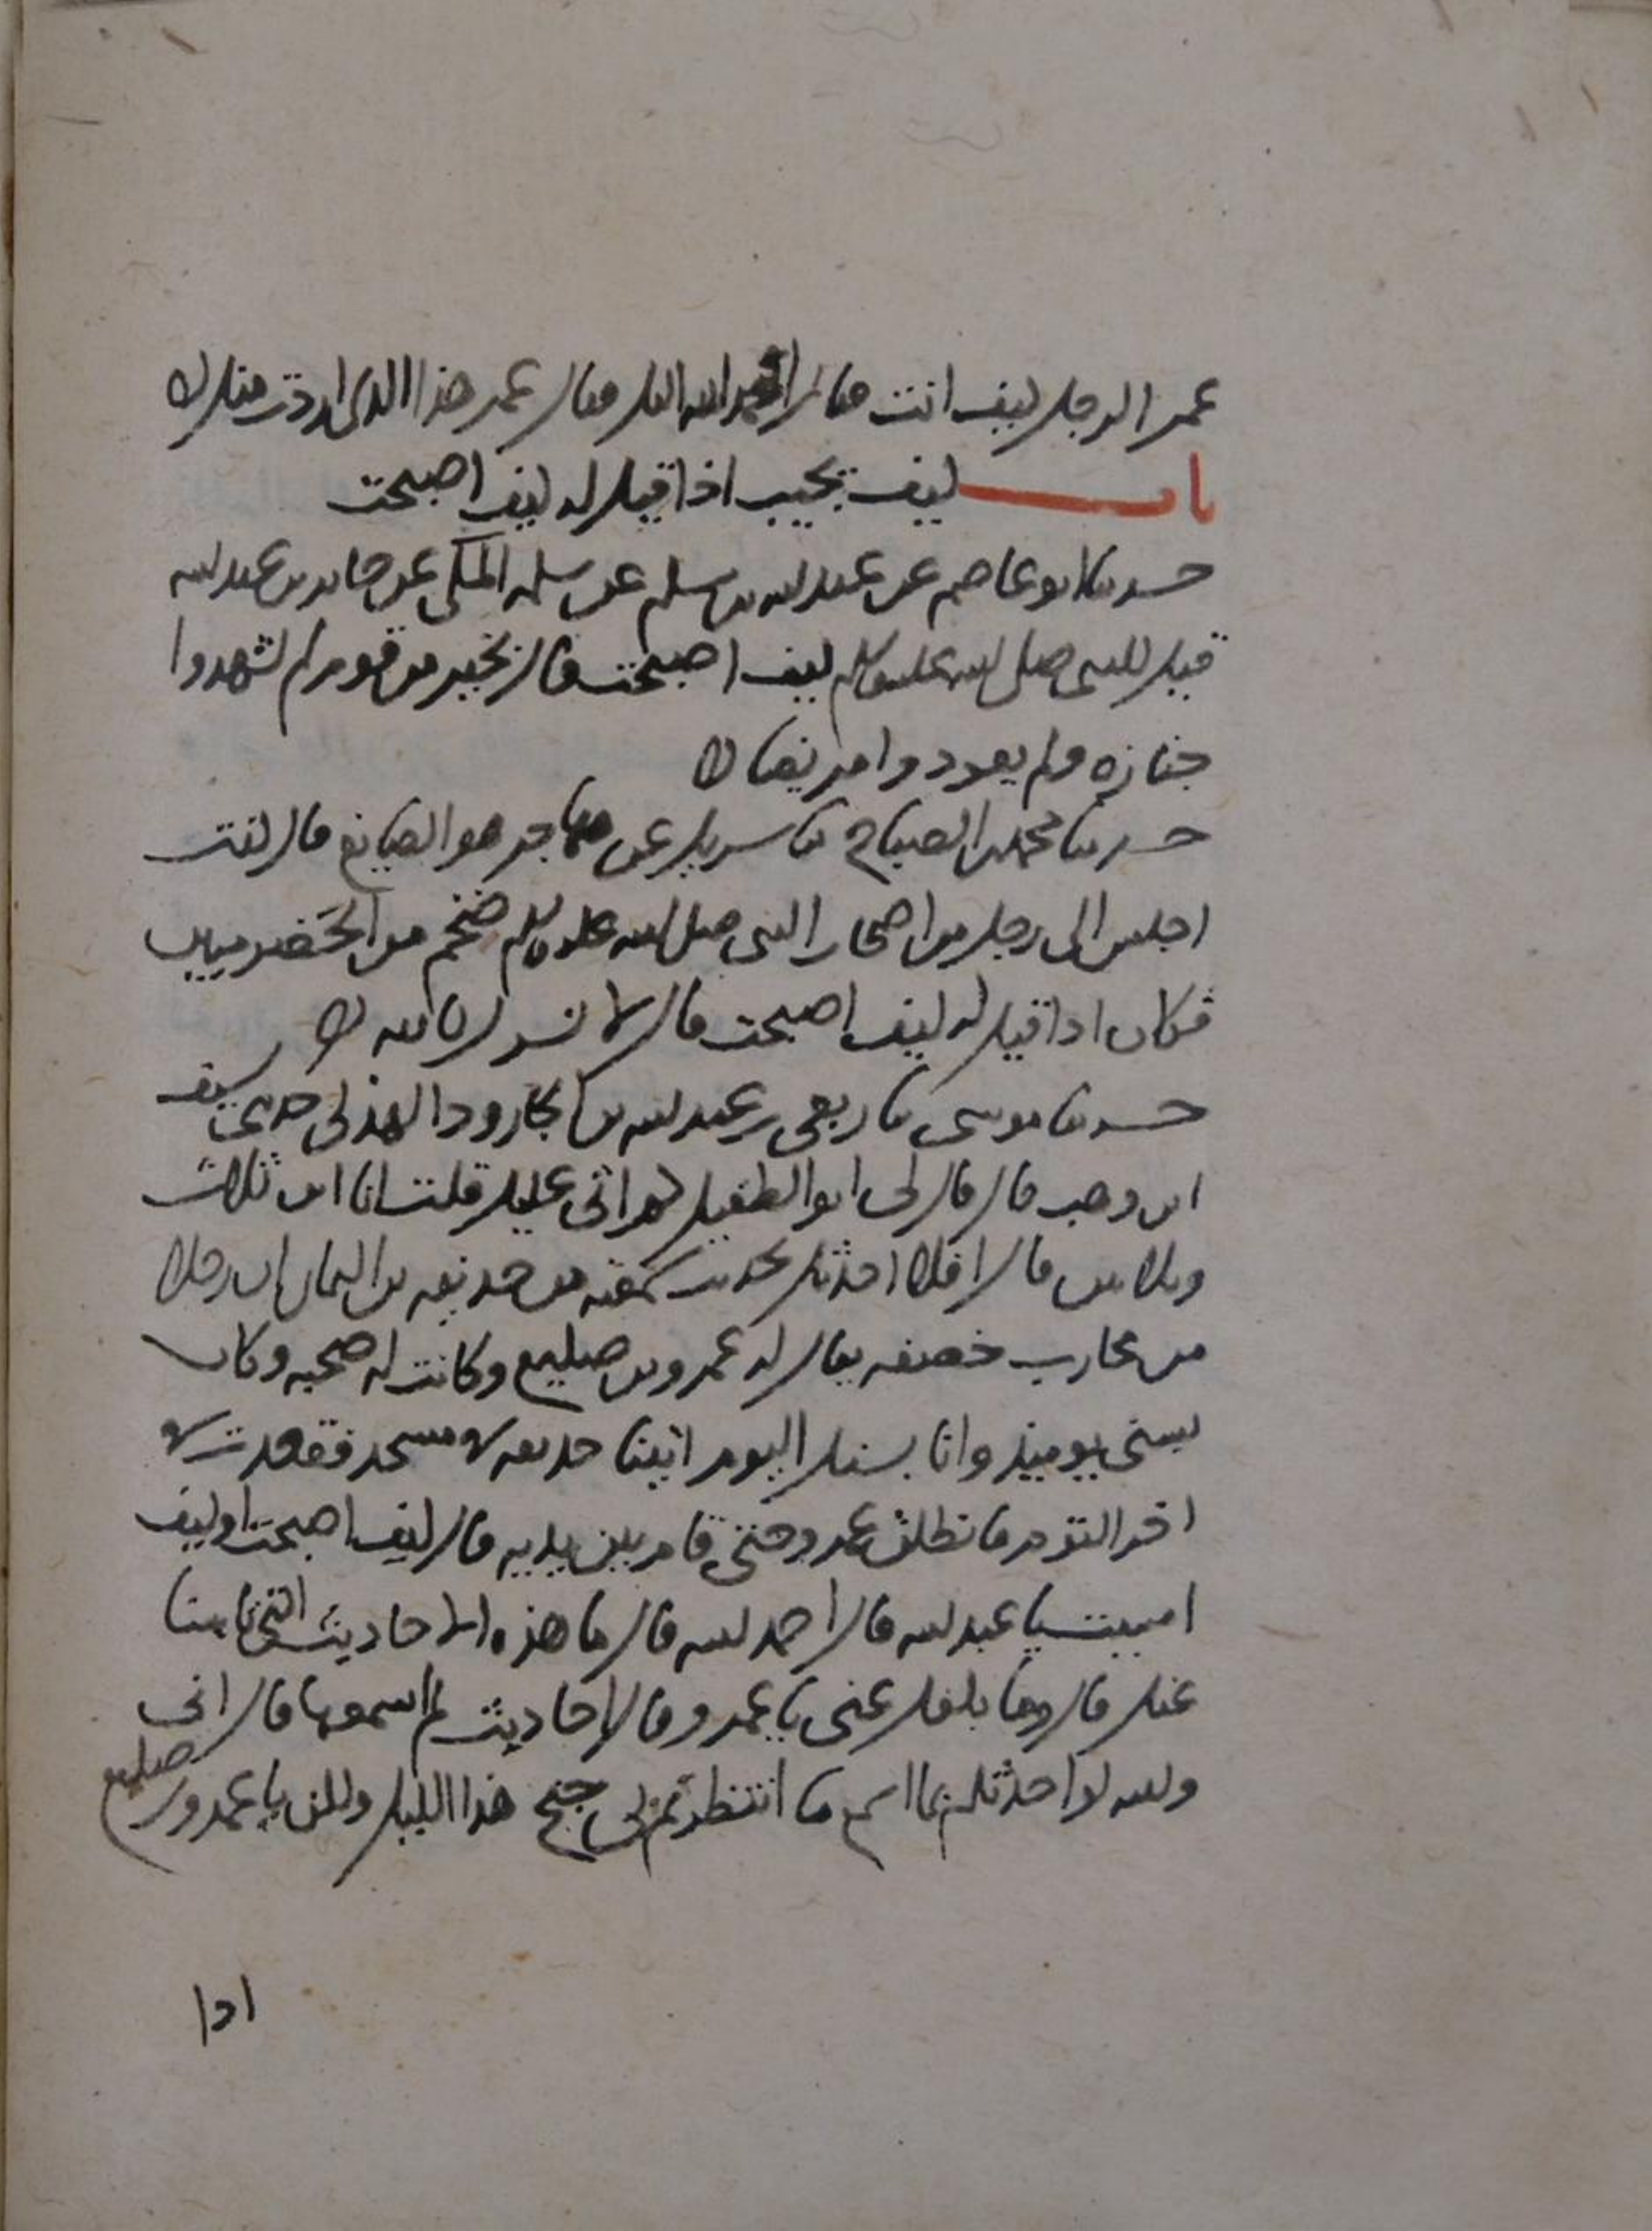 عمر الرجل كيف انت فقال احمد الله اليك فقال عمر هذا الذي اردت منك
باب كيف تجيب اذا قيل له كيف اصبحت
حدثنا ابو عاصم عن عبد الله بن مسلم عن سلمه المكي عن جابر بن عبد الله
قيل للنبي صلى الله عليه وسلم كيف اصبحت قال بخير من قوم لم تشهدوا
جنازه ولم يعودوا مريضا
حدثنا محمد بن الصباح ثنا شريك عن مهاجر هو الصايغ قال كنت
اجلس الى رجل من اصحاب النبي صلى الله عليه وسلم ضخم من الحضرميين
فكان اذا قيل له كيف اصبحت قال لا نشرك بالله
حدثنا موسى ثنا ربعي بن عبد الله بن الجارود الهذلي حدثني سيف
ابن وهب قال قال لي ابو الطفيل كم اتى عليك قلت انا ابن ثلاث
وثلاثين قال افلا احدثك بحديث سمعته من حذيفه بن اليمان ان رجلا
من محارب خصفه يقال له عمرو بن صليع وكانت له صحبه وكان
بسني يوميذ وانا بسنك اليوم اتينا حذيفه في مسجد فقعدت في
اخر القوم فانطلق عمرو حتى قام بين يديه قال كيف اصبحت او كيف
امسيت يا عبد الله قال احمد الله قال ما هذه الاحاديث التي تاتينا
عنك قال وما بلغك عني يا عمرو قال احاديث لم اسمعها قال اني
والله لو احدثكم بما اسمع ما انتظرتم بي جنح هذا الليل ولكن يا عمرو بن صليع
اذا